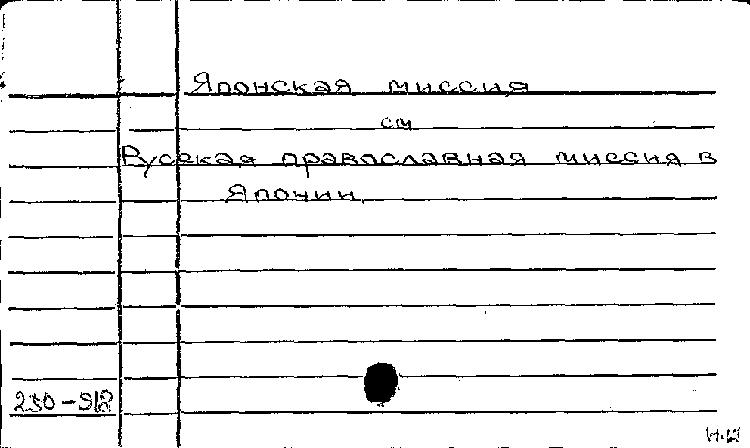 Японская миссия
см
Русская православная миссия в
Японии